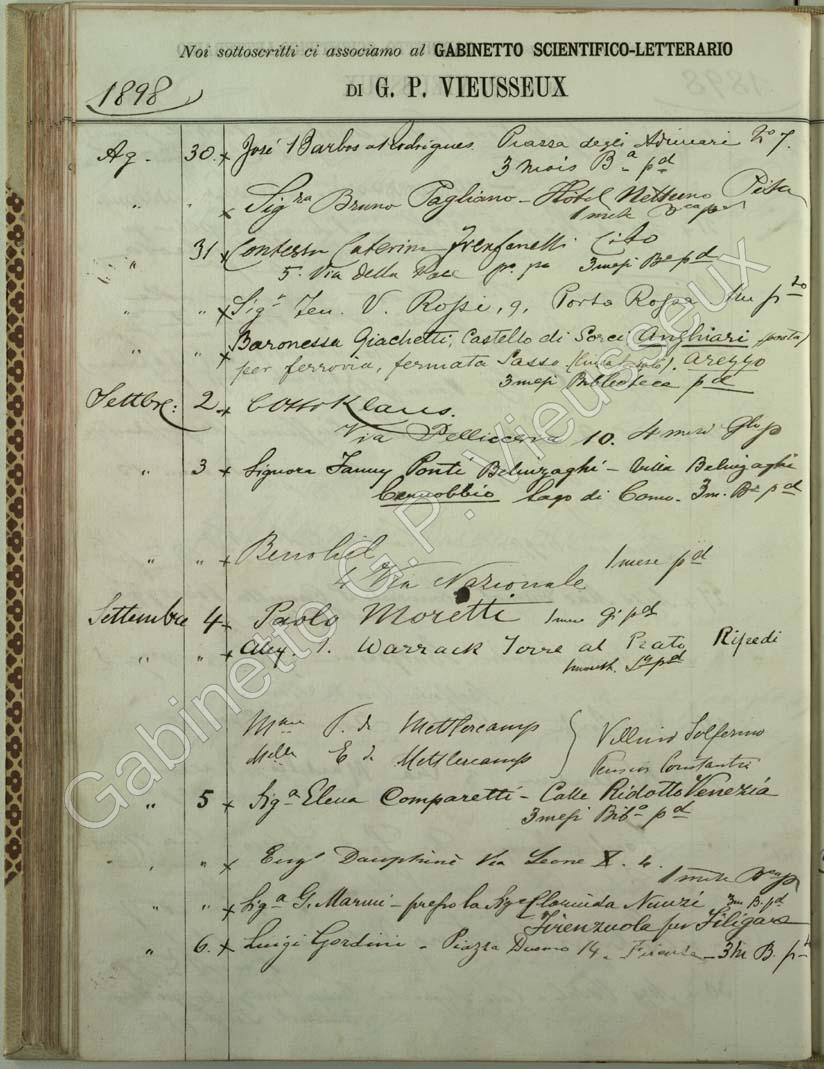 Noi sottoscritti ci associamo al GABINETTO SCIENTIFICO-LETTERARIO
1898
DI G. P. VIEUSSEUX
Ag. 30. x José Barbosa Rodrigues. Piazza degli Adimari
3 mois Bª pd
" " x Sigra Bruno Pagliano - Hôtel Nettuno Pisa
1 mese
" 31 x Contessa Caterina Cito
5. Via della Pace 3 mesi Bª pd
" " x Sigr Ten. V. Rossi, 9, Porta Rossa
" " x Baronessa Giachetti, Castello di Sorci Anghiari (posta)
per ferrovia, fermata Sasso Arezzo
3 mesi Biblioteca pd
Settbre: 2 x Otto Klaus.
Via Pellicceria 10. 4 mesi
" 3 x Signora Fanny Ponti Belinzaghi - Villa Belinzaghi
Cernobbio Lago di Como. 3 m. Bª pd
" " x
1 mese pd
4 Via Nazionale
Settembre 4 x Paolo Moretti 1 mese
" " x Alex. Warrack Torre al Prato Rifredi
1 month.
Mme de Mettlercamp
Melle E de Mettlercamp
Villino Solferino
Pension Constantin
" 5 x Sigª Elena Comparetti - Calle Ridotto Venezia
3 mesi Bibª pd
" " x Dauphiné Via Leone X. 4.
1 mese
" " x Sigª G. Marini - presso la Sigª Nunzi 3m B. pd
Firenzuola per Filigare
" 6. x Luigi Gordini - Piazza Duomo 14. Firenze - 3m B.
Gabinetto G. P. Vieusseux